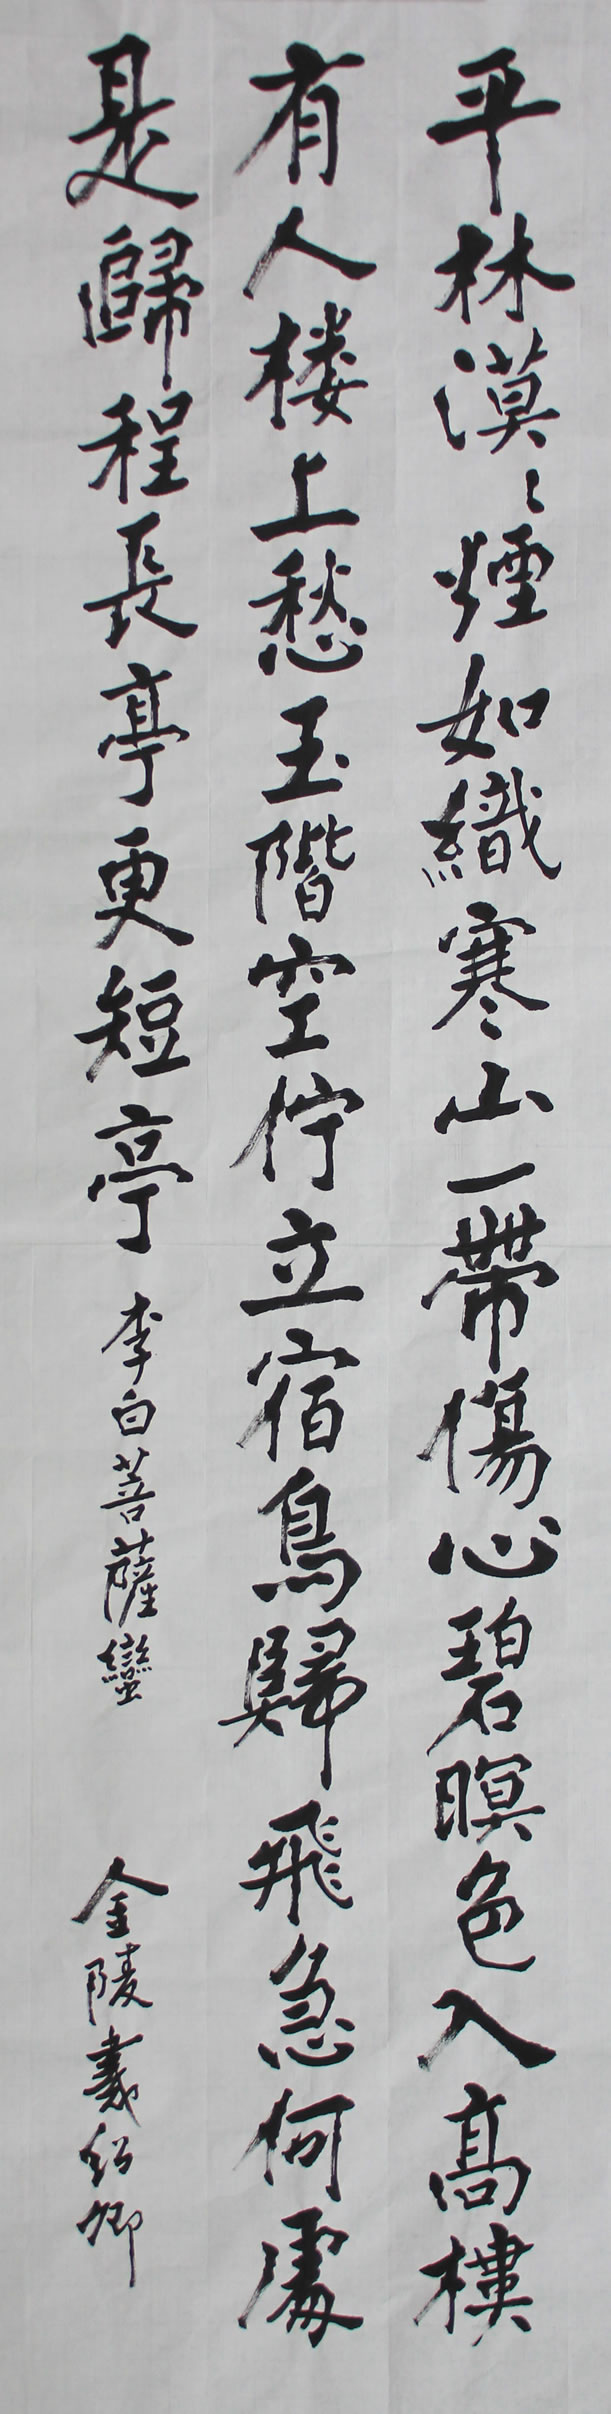 平林漠〻煙如織寒山一帶傷心碧暝色入高樓
有人楼上愁玉階空佇立宿鳥歸飛急何處
是歸程長亭更短亭 李白菩薩蠻 金陵戴紹卿